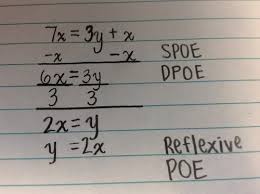 7x = 3y + x
-x -x SPOE
6x = 3y DPOE
3 3
2x = y
y = 2x Reflexive
POE